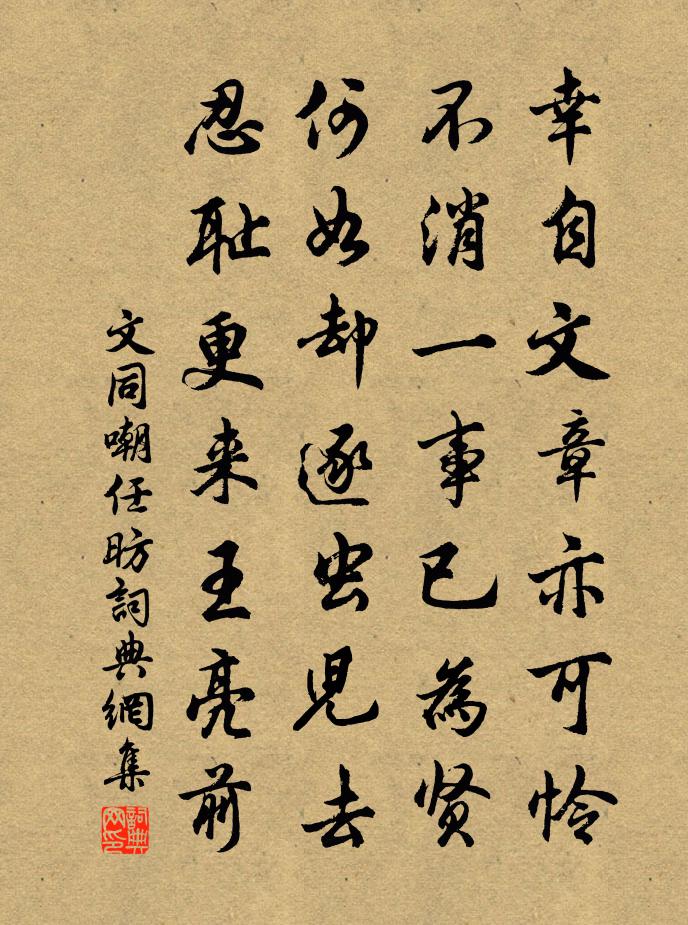 幸自文章亦可怜
不消一事已為贤
何如却逐虫児去
忍耻更来王亮前
文同嘲任昉詞典網集
詞典网印